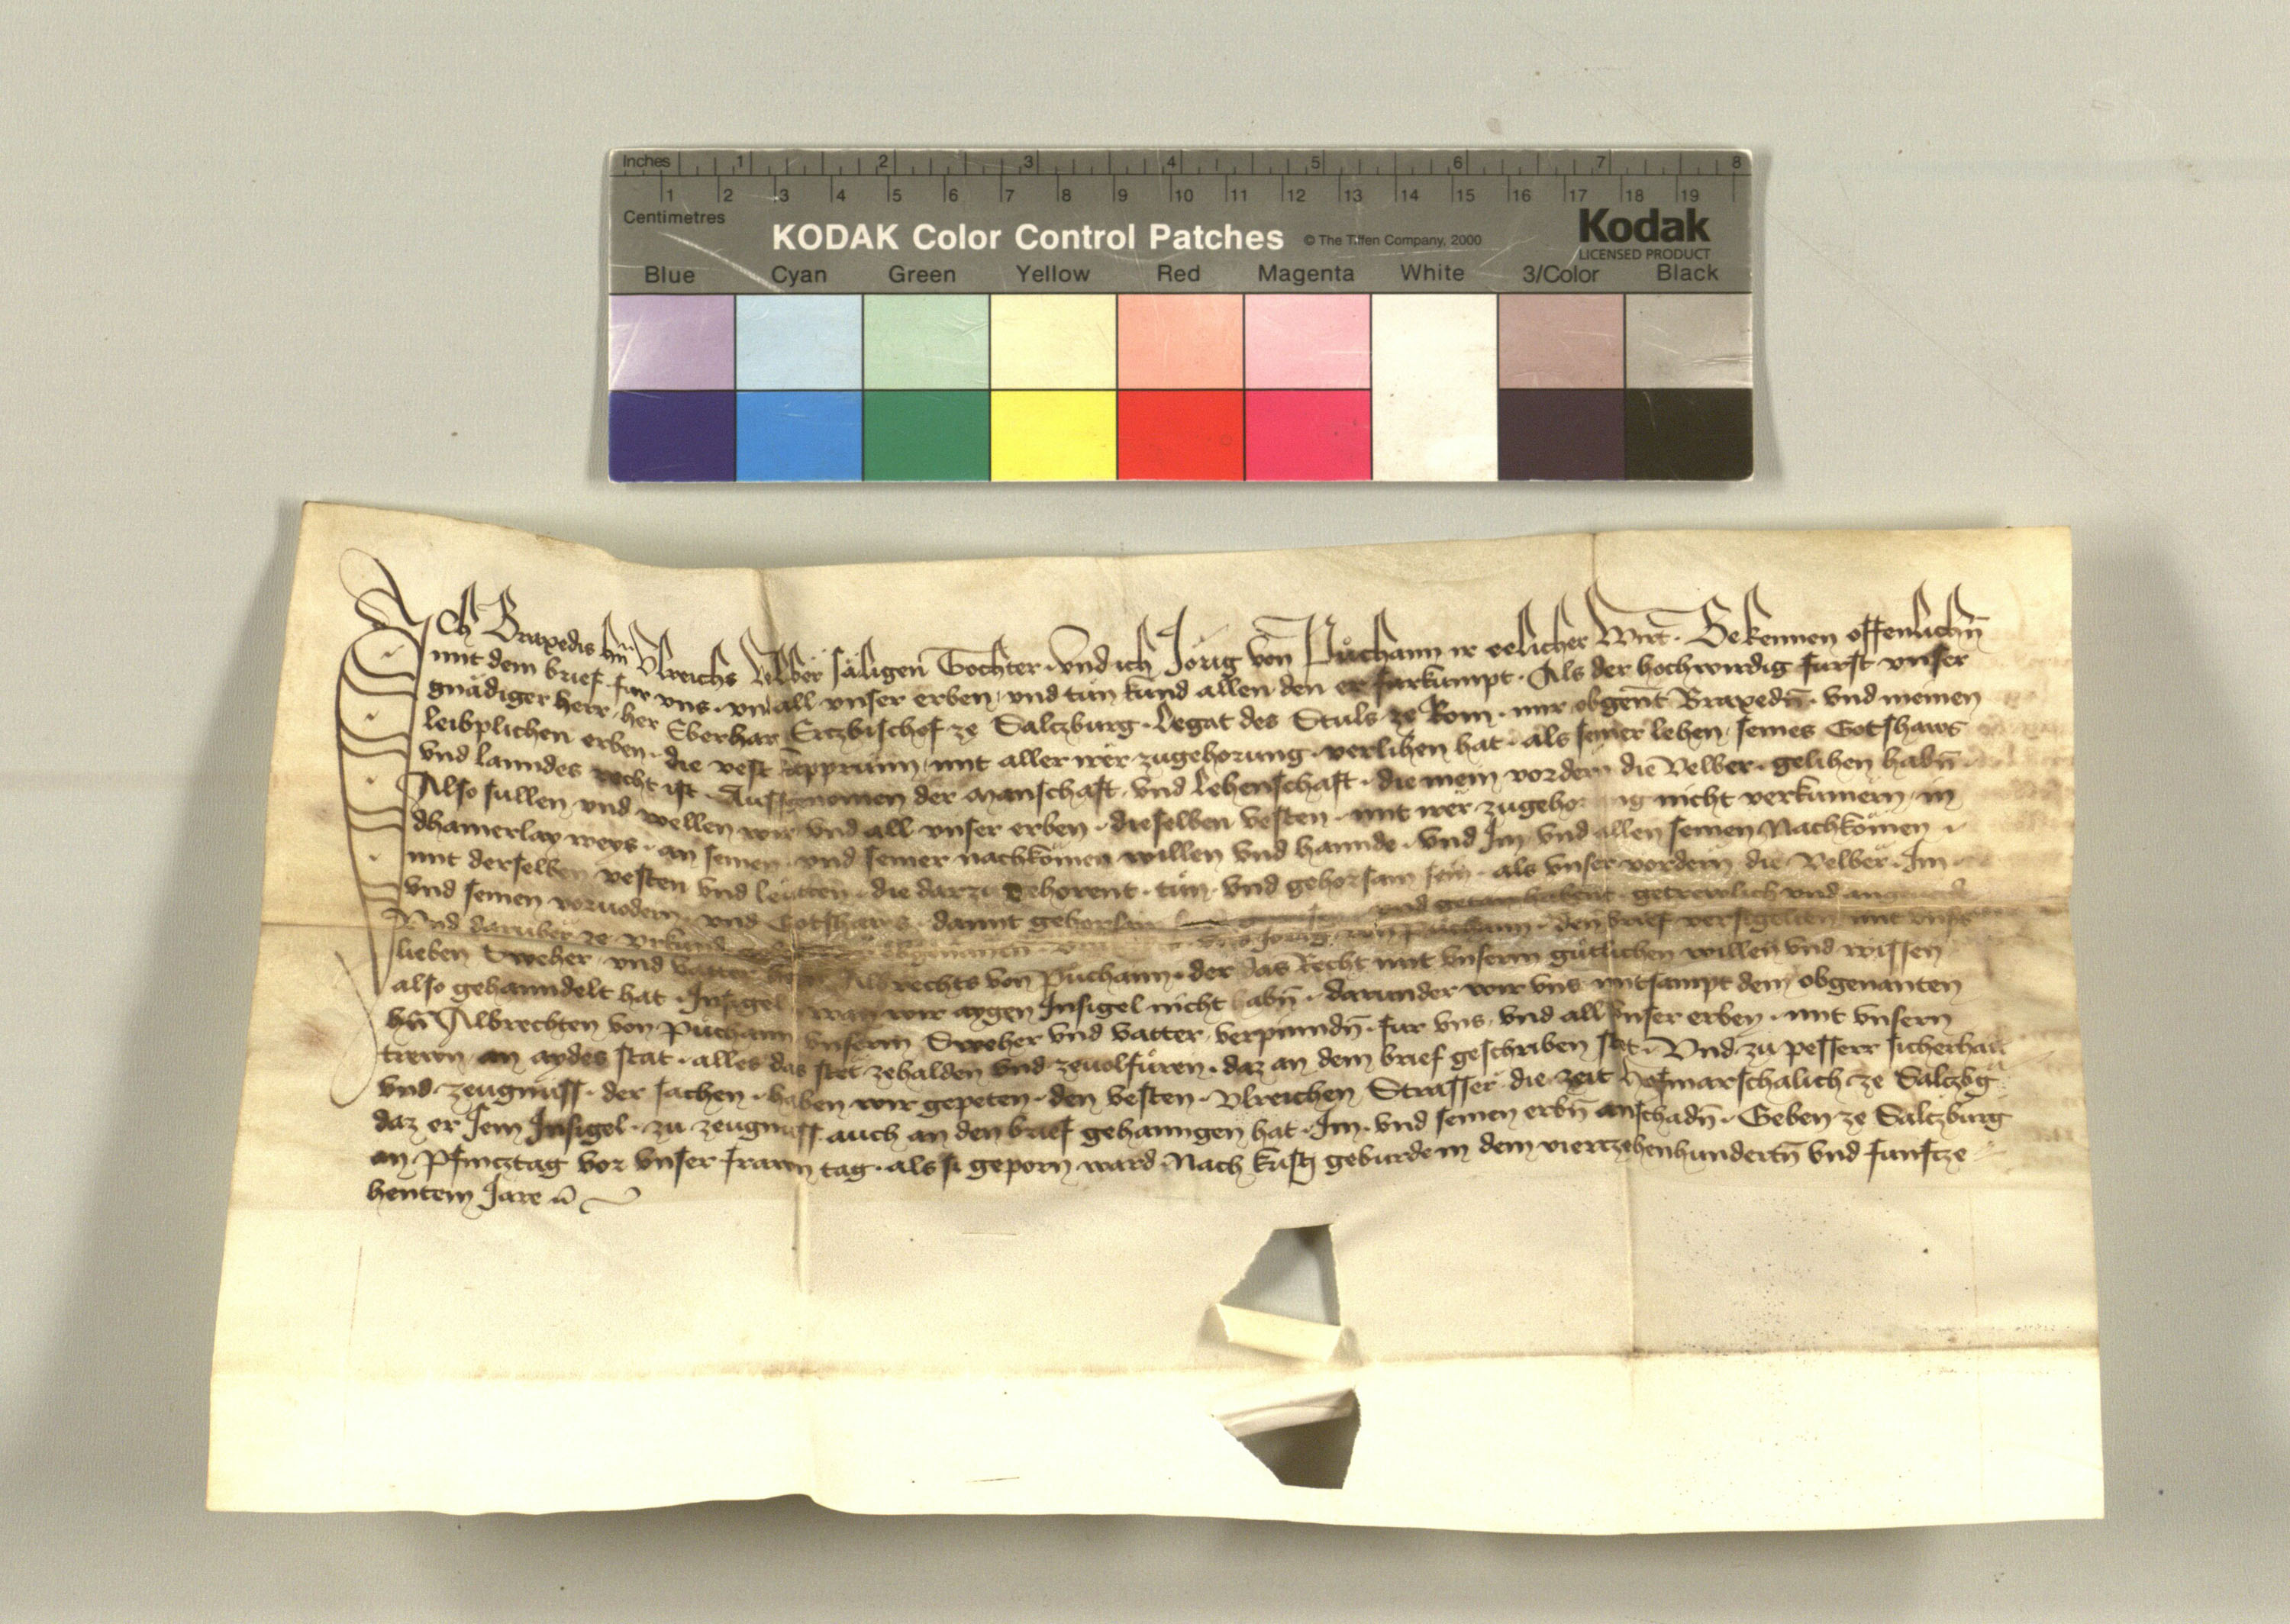 Inches 1 2 3 4 5 6 7 8
1 2 3 4 5 6 7 8 9 10 11 12 13 14 15 16 17 18 19
Centimetres
KODAK Color Control Patches © The Tiffen Company, 2000 Kodak
LICENSED PRODUCT
Blue Cyan Green Yellow Red Magenta White 3/Color Black
Ich Braxedis hrn̄ Vlreichs Velber säligen Tochter · vnd ich Jörig von Půchaim ir eelicher Wirt · Bekennen offenlichn̄
mit dem brief · fur vns · vnd all vnser erben · vnd tůn kund allen den er furkumpt · Als der hochwirdig furst vnser
gnädiger herr · her Eberhart Ertzbischof ze Saltzburg · Legat des Stuls ze Rom · mir obgen̄t Braxedn̄ · vnd meinen
leibplichen erben · die vest Capprunn · mit aller irer zugehorung · verlihen hat · als seiner lehen · seines Gotshaws
vnd lanndes recht ist · Ausgenomen der manschaft · vnd lehenschaft · die mein vordern die Velber · gelihen habn̄ ·
Also sullen vnd wellen wir vnd all vnser erben · dieselben vesten · mit irer zugehorung nicht verkumern · in
dhainerlay weys · an seinen · vnd seiner nachkömen willen vnd hannde · vnd Im vnd allen seinen Nachkömen ·
mit derselben vesten vnd leütten · die darzu gehorent · tůn · vnd gehorsam sein · als vnser vordern die Velber · Im
vnd seinen voruodern · vnd Gotshaws · damit gehorsam vnd getan habent · getrewlich vnd
Vnd daruber ze vrkund obgenanten Jorig von Půchaim · den brief versigelten mit vnsers
lieben Sweher · vnd vatter hern Albrechts von Půchaim · der das Recht mit vnserm gůtlichen willen vnd wissen
also gehanndelt hat · Insigel wan wir aygen Insigel nicht habn̄ · darunder wir vns mitsampt dem obgenanten
hrn̄ Albrechten von Půchaim vnserm Sweher vnd vatter · verpinndn̄ · fur vns · vnd all vnser erben · mit vnsern
trewn · an aydes stat · alles das stet zehalden vnd zeuolfüren · daz an dem brief geschriben stet · Vnd zu pesserr sicherhait
vnd zeugnuss · der sachen · haben wir gepeten · den vesten · Vlreichen Strasser die zeit Hofmarschalich ze Saltzbg
daz er sein Insigel · zu zeugnuss auch an den brief gehanngen hat · Im · vnd seinen erbn̄ anschadn̄ · Geben ze Saltzburg
an Pfincztag vor vnser frawn tag · als si geporn ward · Nach Kristi geburde in dem viertzehenhundertn̄ vnd funftze
hentem Jare